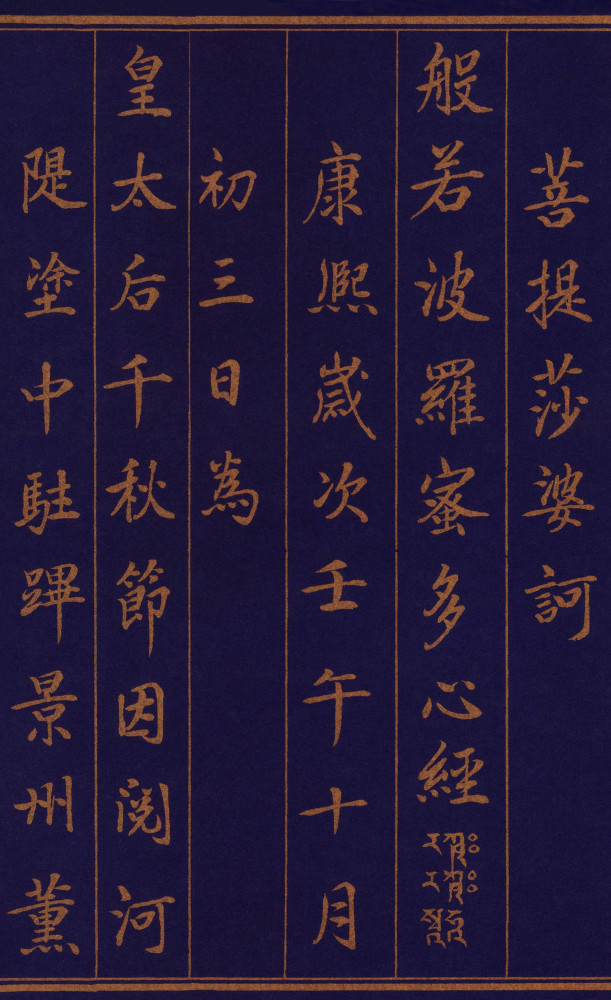 菩提莎婆訶
般若波羅蜜多心經
康熈歲次壬午十月
初三日為
皇太后千秋節因閱河
隄塗中駐蹕景州薰